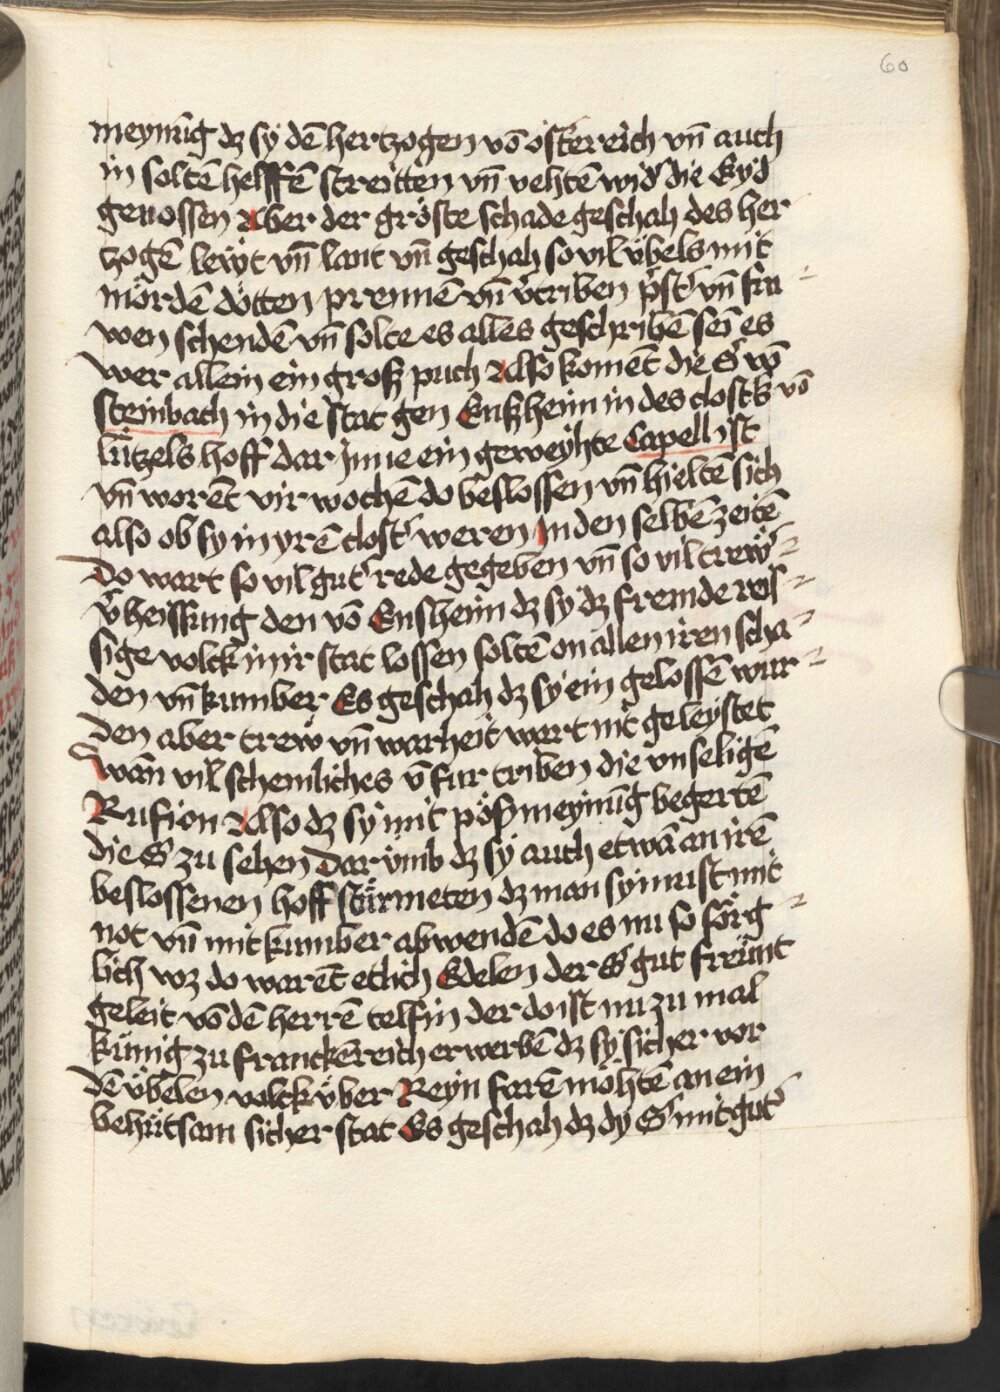 60
meynūg dz sy dē hertzogen vō österreich vn̄ auch
in soltē helffē streitten vn̄ vehtē wid᷑ die Eyd
genossen Aber der gröste schade geschah des her
zogē lewt vn̄ lant vn̄ geschah so vil v̈bels mit
mördē dötten prennē vn̄ v᷑triben pst᷑ vn̄ fra⸗
wen schendē vn̄ solte es alles geschribē sei es
wer allein ein groß puch Also komēt die S vō
steinbach in die stat gen Enßheim in des closters vō
lützels hoff dar Inne ein geweyhte Capell ist
vn̄ worēt vir wochē do beslossen vn̄ hieltē sich
also ob sy in yrē clost᷑ weren In den selbē zeitē
do wart so vil gut᷑ rede gegeben vn̄ so vil trew⸗
v᷑heissung den vō Ensheim dz sy dz fremde reis⸗
sige volck in ir stat lossen soltē on allen iren scha⸗
den vn̄ kumber Es geschah dz sy ein gelossē wur⸗
den aber trew vn̄ warheit wart nit geleystet
wān vil schemliches v᷑fur triben die vnseligē
Rufion Also dz sy mit pöß meynūg begertē
die S zu sehen Dar v̈mb dz sy auch etwā an irē
beslossenen hoff stürmeten dz man sy must mit
not vn̄ mit kumber abwendē do es nu so sörg⸗
lich wz do warēt etlich Edelen der S gut freünt
geleit vō dē herrē telfin der do ist nu zu mal
künig zu franckēreich erwerbē dz sy sicher vor
dē v̈belen volck v̈ber Reyn farē möhtē an ein
behütsam sicher stat Es geschah dz dy S mit gut᷑